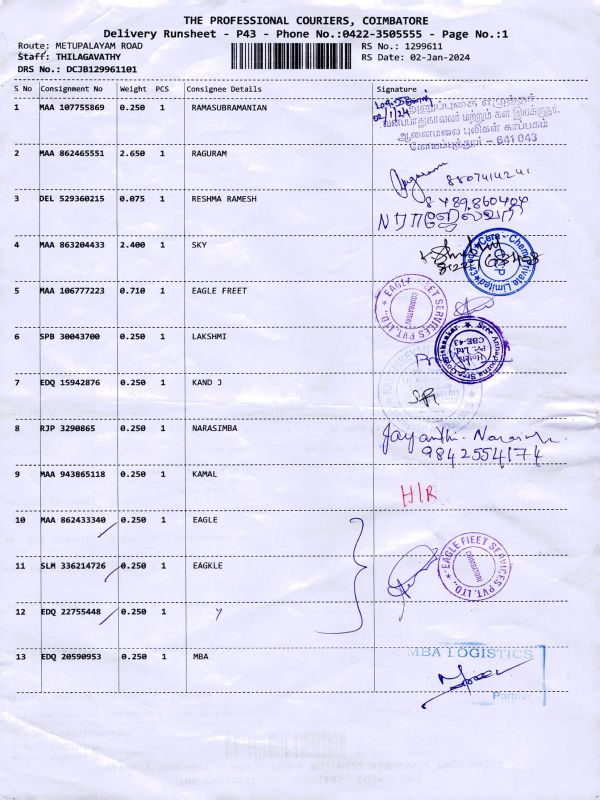 THE PROFESSIONAL COURIERS, COIMBATORE
Delivery Runsheet - P43 - Phone No.:0422-3505555 - Page No.:1
Route: METUPALAYAM ROAD
RS No.: 1299611
Staff: THILAGAVATHY
RS Date: 02-Jan-2024
DRS No.: DCJB129961101
S No Consignment No Weight PCS Consignee Details Signature
1 MAA 107755869 0.250 1 RAMASUBRAMANIAN
02/1/24
அனுப்புகை எழுத்தர்
வனப்பாதுகாவலர் மற்றும் கள இயக்குநர்,
ஆனைமலை புலிகள் காப்பகம்
கோயம்புத்தூர் - 641 043
2 MAA 862465551 2.650 1 RAGURAM
8807414241
3 DEL 529360215 0.075 1 RESHMA RAMESH
8489860404
4 MAA 863204433 2.400 1 SKY
Cera-Chem Private Limited
5 MAA 106777223 0.710 1 EAGLE FREET
EAGLE FLEET SERVICES PVT. LTD.,
COIMBATORE
6 SPB 30043700 0.250 1 LAKSHMI
Sree Annapoorna Sree Gowrishankar
Hotels Pvt. Ltd.
CBE-43
7 EDQ 15942876 0.250 1 KAND J
8 RJP 3290865 0.250 1 NARASIMBA
Jayanthi. Narasimh
9842554174
9 MAA 943865118 0.250 1 KAMAL
H/R
10 MAA 862433340 0.250 1 EAGLE
11 SLM 336214726 0.250 1 EAGKLE
EAGLE FLEET SERVICES PVT. LTD.,
COIMBATORE
12 EDQ 22755448 0.250 1 Y
13 EDQ 20590953 0.250 1 MBA
MBA LOGISTICS
Partner